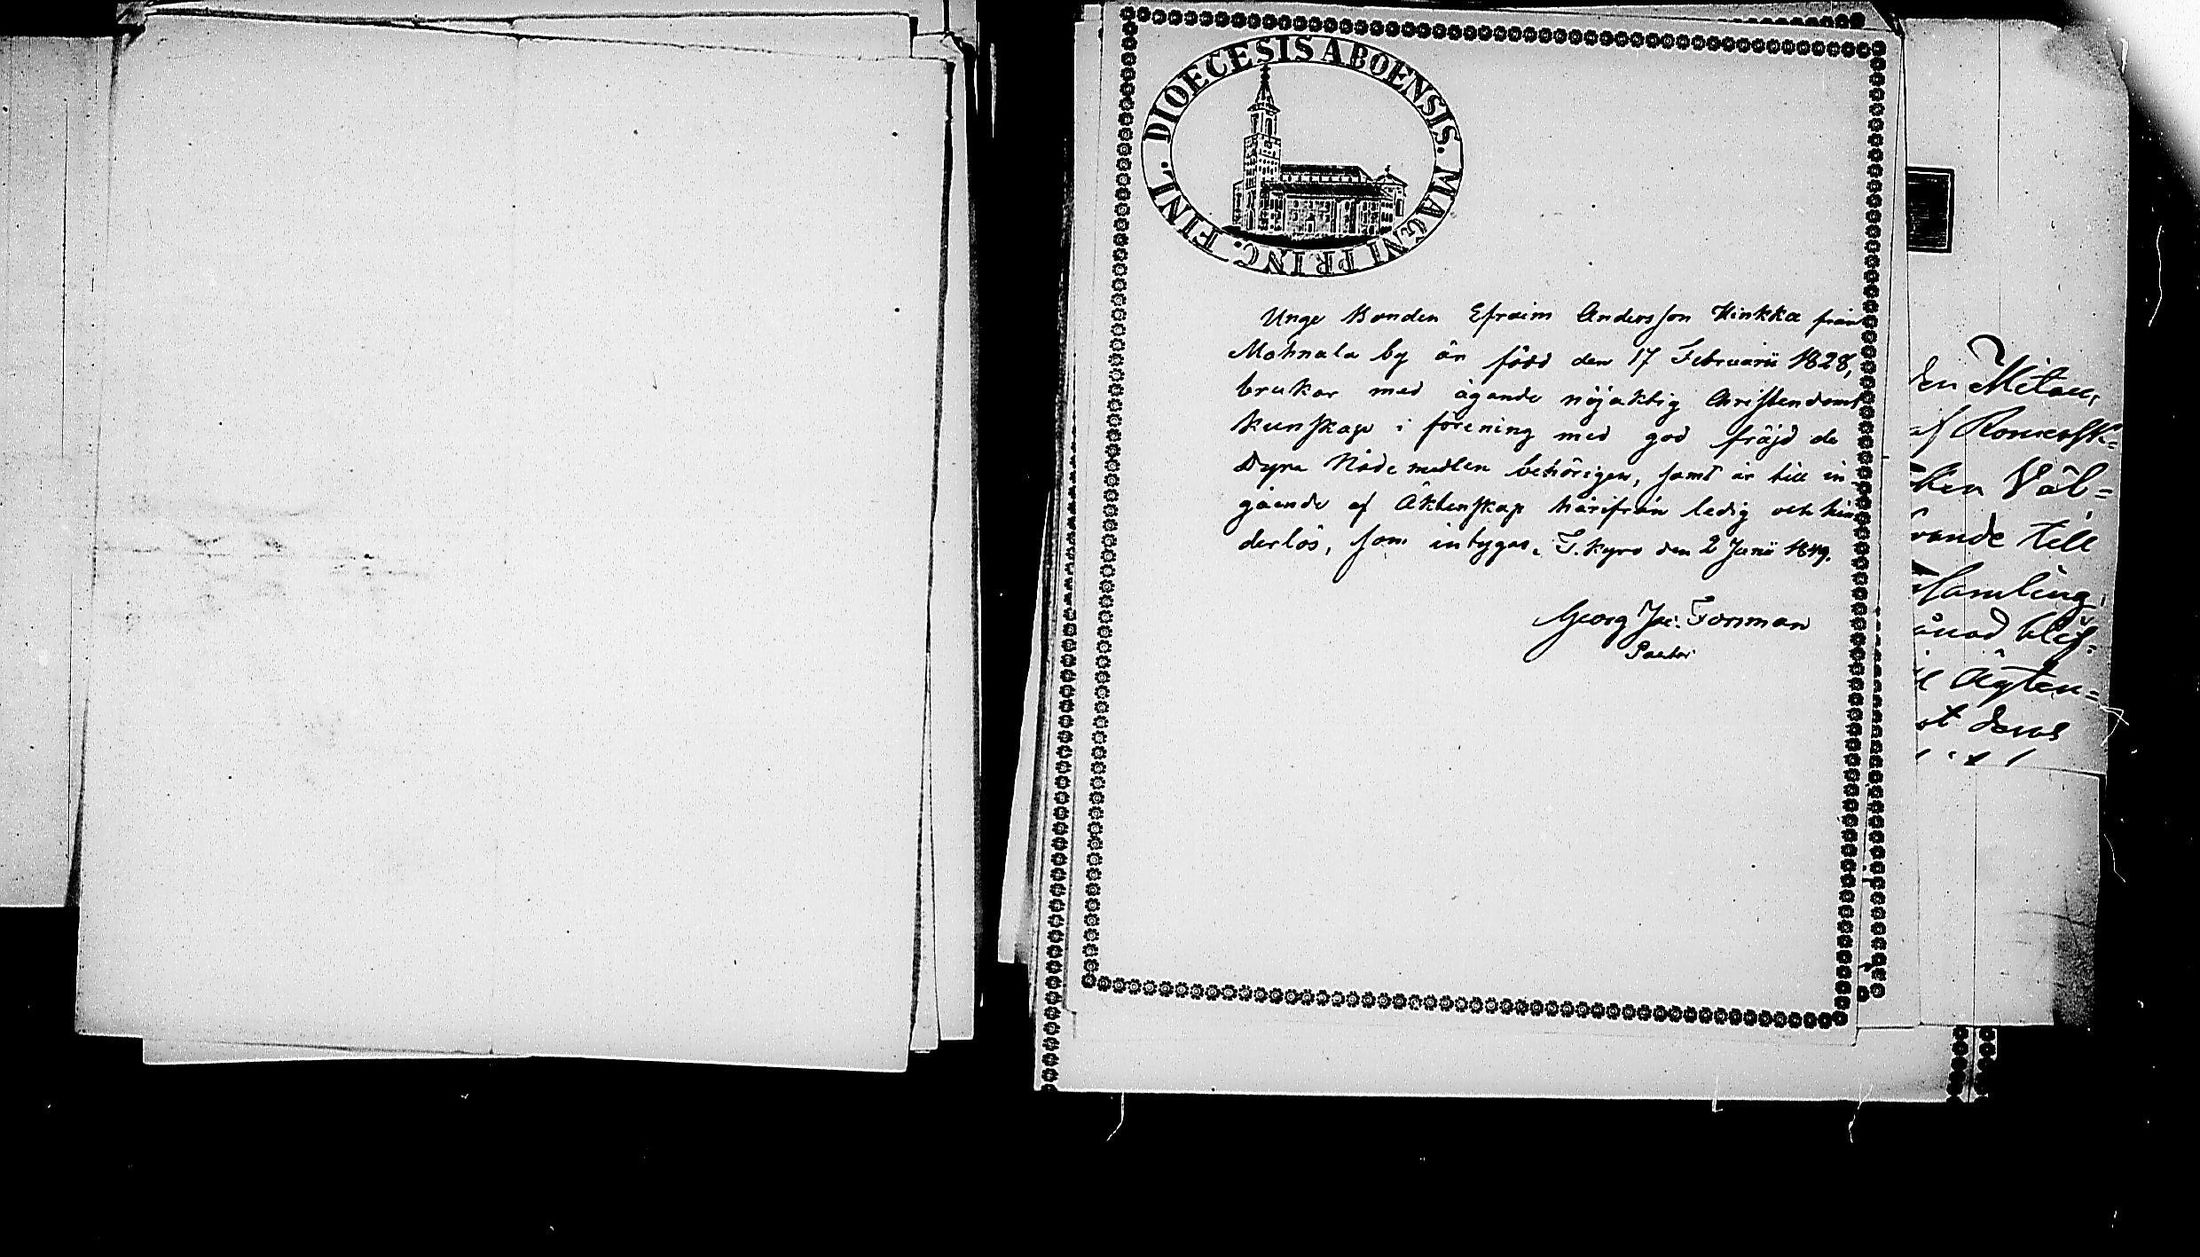 DIOECESIS ABOENSIS. MAGNI PRINC. FINL.
Unge Bonden Efraim Andersson Hinkka från
Mahnala by är född den 17 Februarii 1828,
brukar med ägande nöjaktig Christendoms
kunskap i förening med god fräjd de
Dyra Nådemedlen behörigen, samt är till in
gående af Äktenskap härifrån ledig och hin
derlös, som intygar. T. Kyro den 2 Junii 1849.
Georg Jac. Forsman
Pastor
den Mitau,
af Romersk-
ken Väl-
rande till
samling,
ånad blif-
Ägten-
st deras